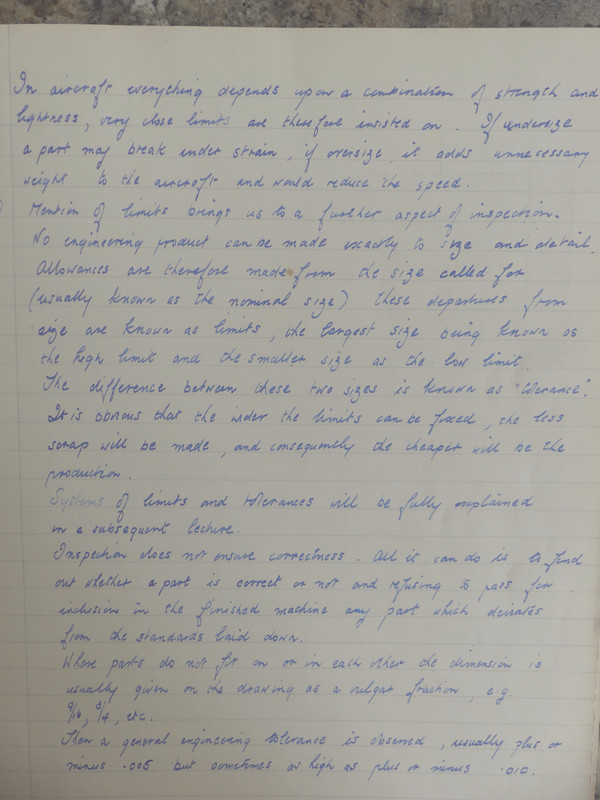 In aircraft everything depends upon a combination of strength and
lightness, very close limits are therefore insisted on. If undersize
a part may break under strain, if oversize, it adds unnecessary
weight to the aircraft and would reduce the speed.
Mention of limits brings us to a further aspect of inspection.
No engineering product can be made exactly to size and detail.
Allowances are therefore made from the size called for
(usually known as the nominal size) these departures from
size are known as limits, the largest size being known as
the high limit and the smaller size as the low limit.
The difference between these two sizes is known as "tolerance".
It is obvious that the wider the limits can be placed, the less
scrap will be made, and consequently the cheaper will be the
production.
Systems of limits and tolerances will be fully explained
in a subsequent lecture.
Inspection does not ensure correctness. All it can do is to find
out whether a part is correct or not and refusing to pass for
inclusion in the finished machine any part which deviates
from the standards laid down.
Where parts do not fit on or in each other the dimension is
usually given on the drawing as a vulgar fraction, e.g.
9/16, 3/4, etc.
Then a general engineering tolerance is observed, usually plus or
minus .005 but sometimes as high as plus or minus .010.